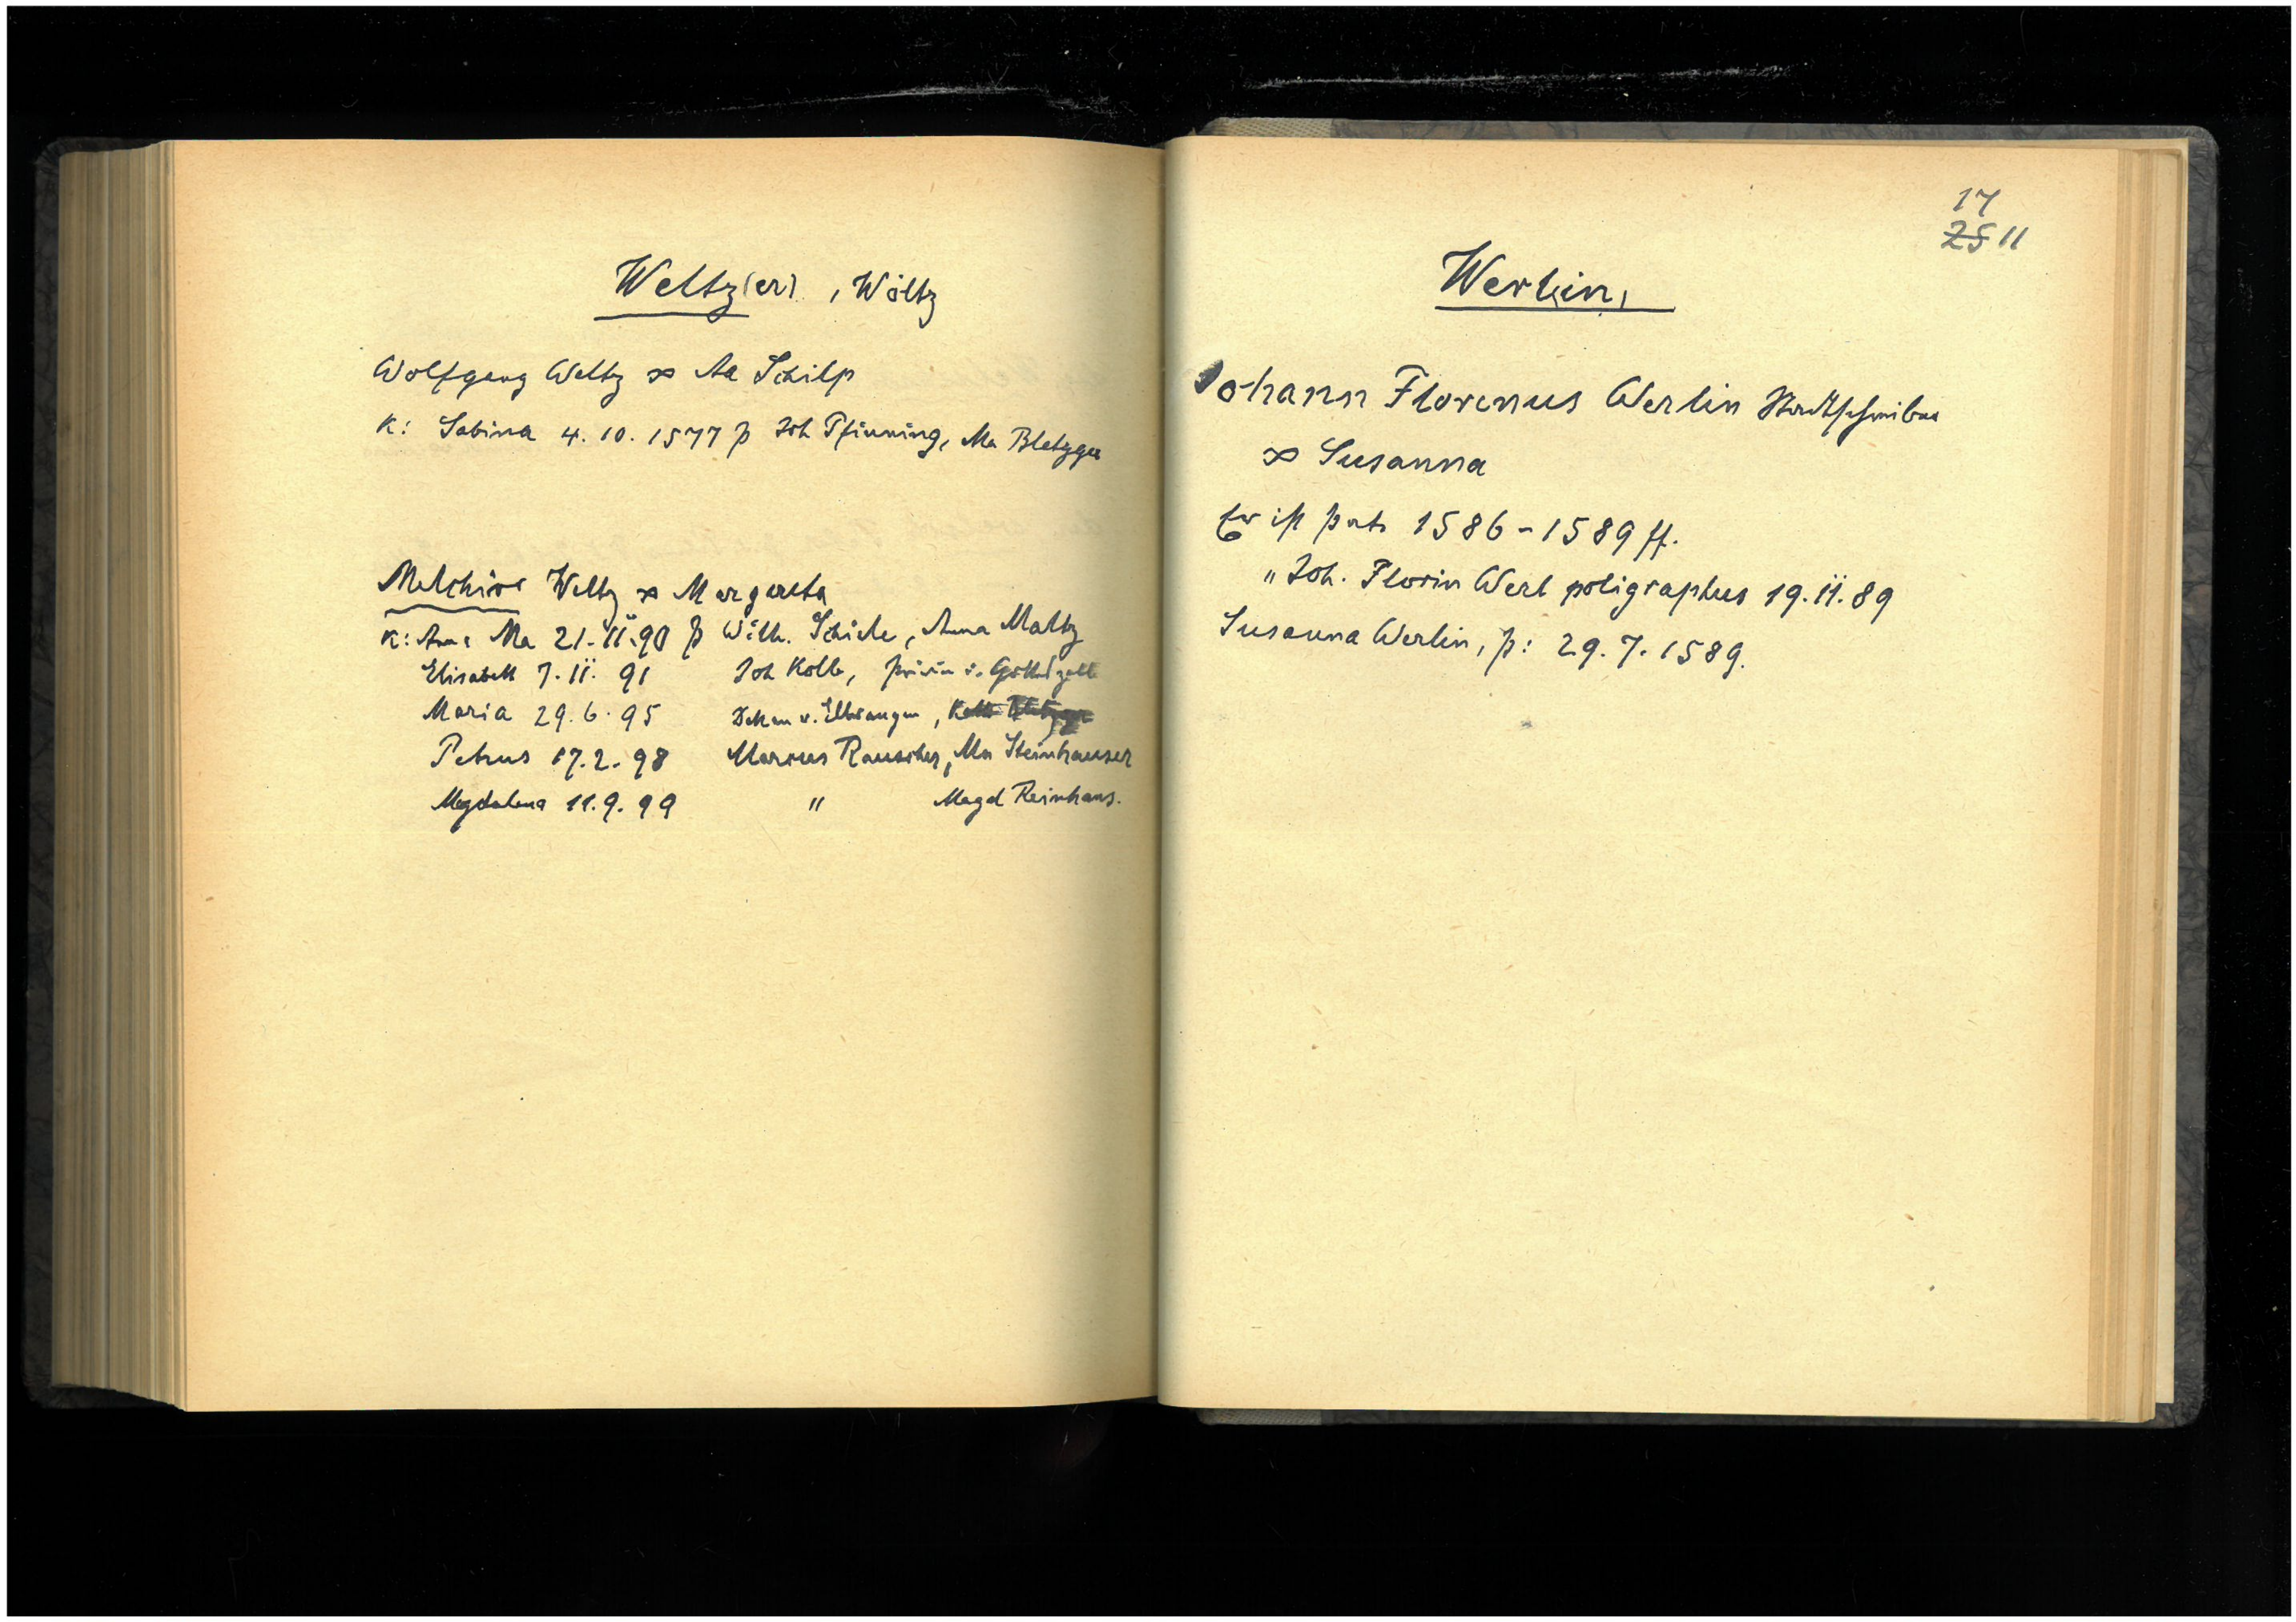 Weltz(er), Wöltz
Wolfgang Weltz ∞ Aa Schilp
K: Sabina 4.10.1577 p Joh Pfinning, Ma Bletzger
Melchior Weltz ∞ Margareta
K: Anna Ma 21.11.90 p Wilh. Schiele, Anna Maltz
Elisabeth 7.11.91 Joh Kolb, priorin v. Gotteszell
Maria 29.6.95 Dekan v. Ellwangen,
Petrus 17.2.98 Marcus Rauscher, Ma Steinhauser
Magdalena 11.9.99 " Magd Reinhans.
17
25 11
Werlin,
Johann Florenus Werlin Stadtschreiber
∞ Susanna
Er ist pat. 1586-1589 ff.
" Joh. Florin Werl poligraphus 19.11.89
Susanna Werlin, p: 29.7.1589.